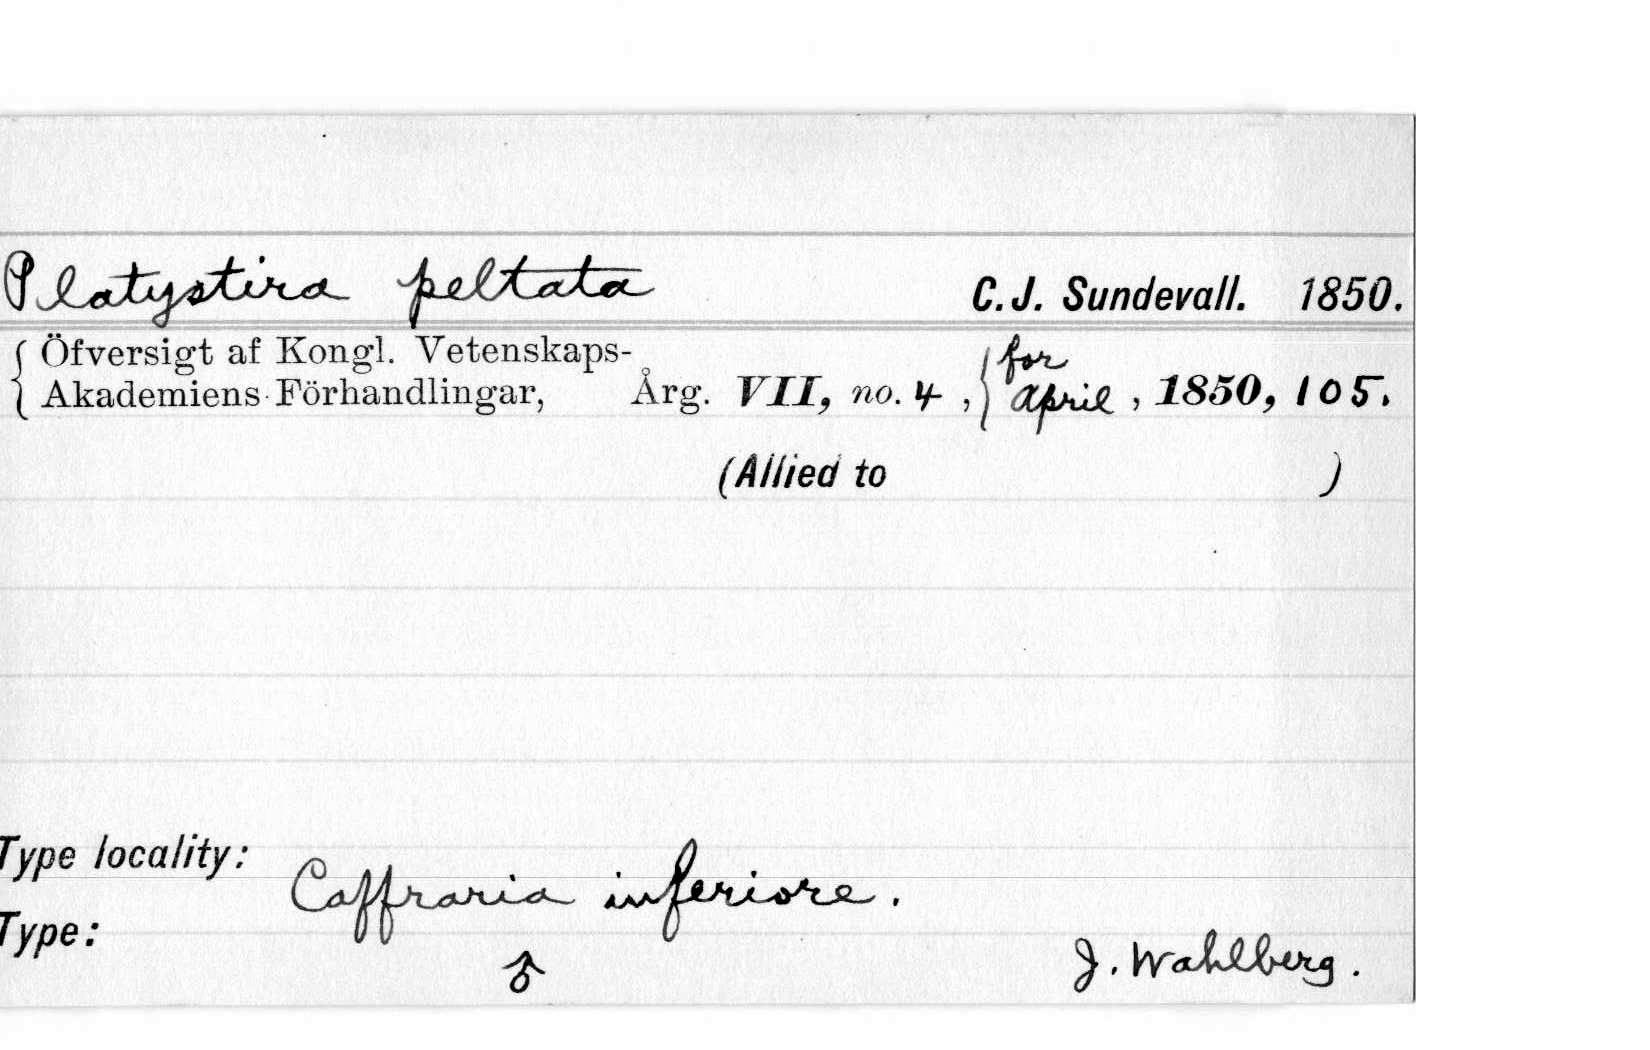 Platystira peltata C. J. Sundevall. 1850.
{ Öfversigt af Kongl. Vetenskaps-
Akademiens Förhandlingar, Årg. VII, no. 4 , { for April , 1850, 105.
(Allied to )
Type locality:
Caffraria inferiore.
Type:
♂ J. Wahlberg.